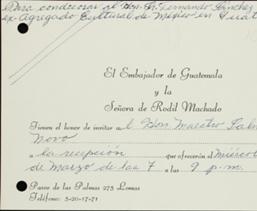 Para condecorar al Hon. Sr. Fernando Sánchez
ex Agregado Cultural de México en Guat
El Embajador de Guatemala
y la
Señora de Rodil Machado
Tienen el honor de invitar a l Hon. Maestro Salv
Novo
a la recepción que ofrecerán el Miércol
de Marzo de las 7 a las 9 p.m.
Paseo de las Palmas 275 Lomas
Teléfono: 5-20-17-71